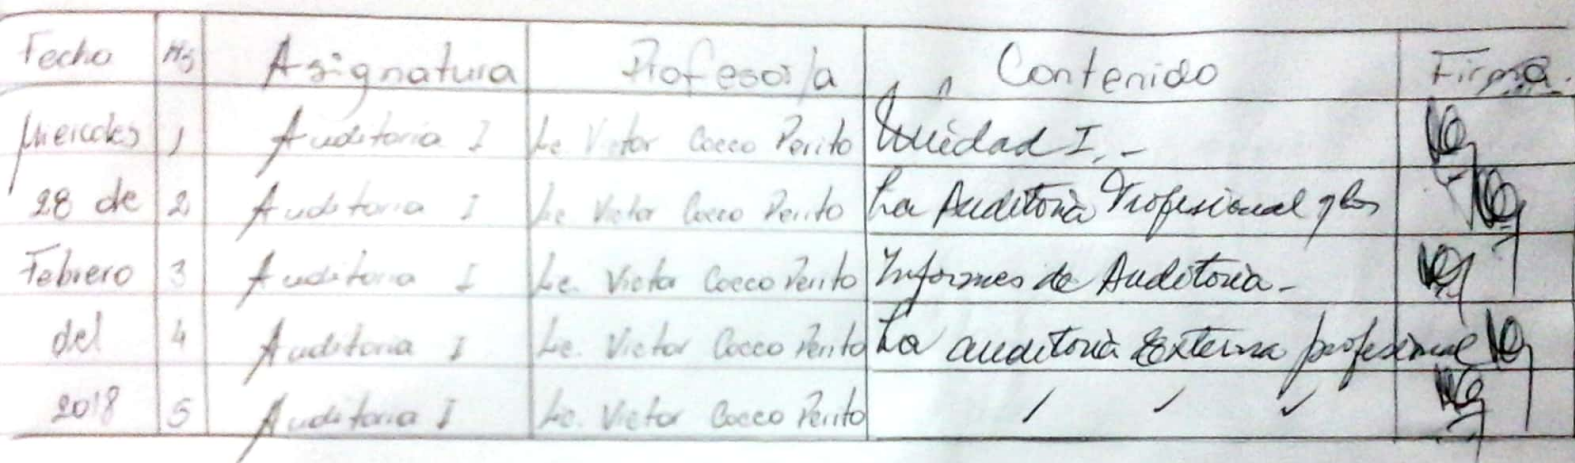 Fecha Hs Asignatura Profesor/a Contenido Firma
Miercoles 1 Auditoria I Lc. Victor Cocco Perito Unidad I. -
28 de 2 Auditoria I Lc. Victor Cocco Perito La Auditoria Profesional y los
Febrero 3 Auditoria I Lc. Victor Cocco Perito Informes de Auditoria -
del 4 Auditoria I Lc. Victor Cocco Perito La auditoria Externa profesional
2018 5 Auditoria I Lc. Victor Cocco Perito